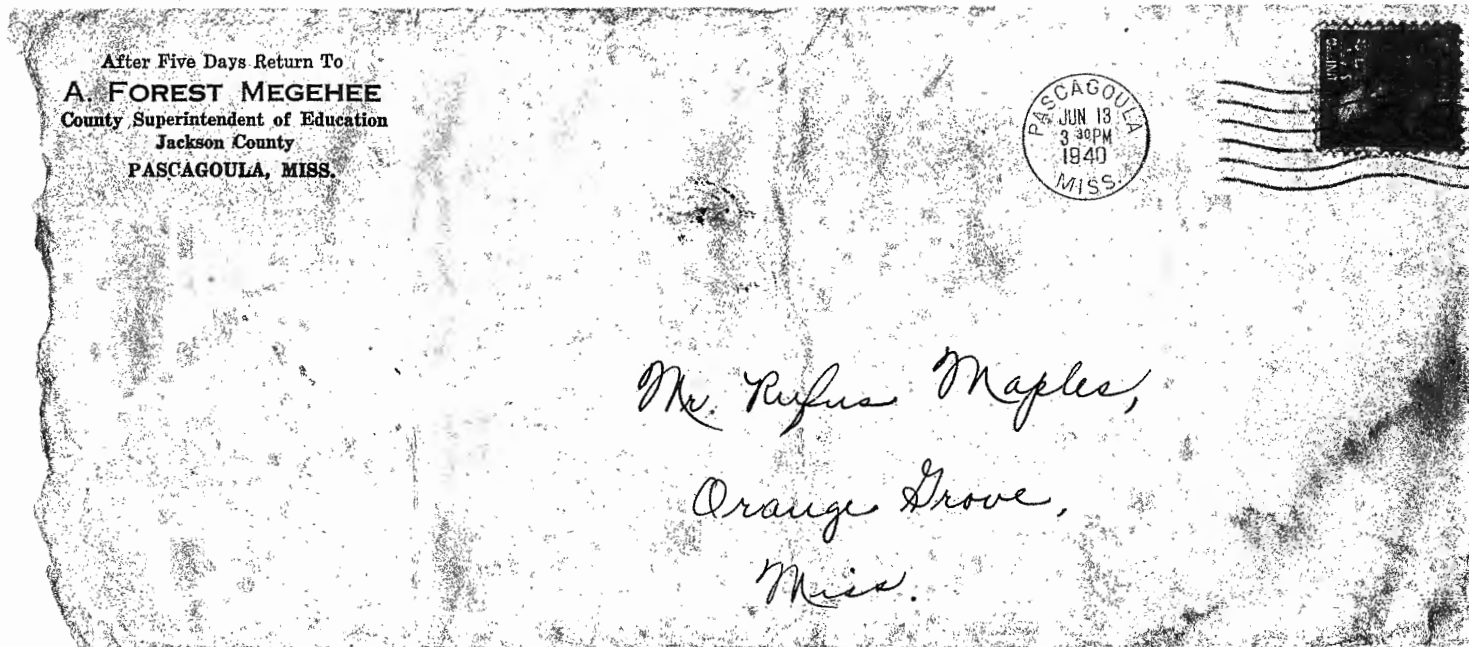 After Five Days Return To
A. FOREST MEGEHEE
County Superintendent of Education
Jackson County
PASCAGOULA, MISS.
PASCAGOULA
JUN 13
3 30 PM
1940
MISS.
UNITED
Mr. Rufus Maples,
Orange Grove,
Miss.